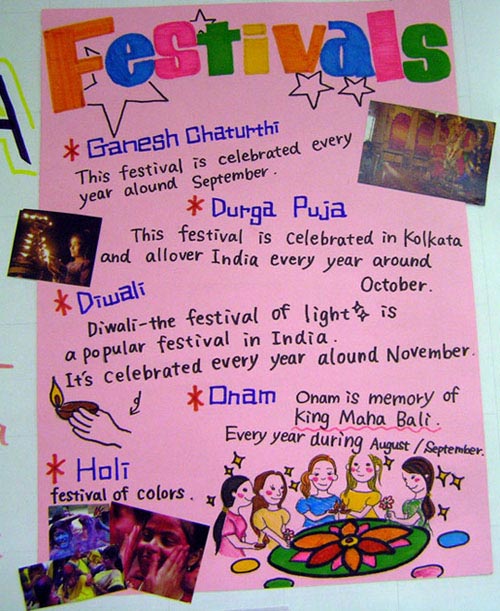 Festivals
* Ganesh Chaturthi
This festival is celebrated every
year alound September.
* Durga Puja
This festival is celebrated in Kolkata
and allover India every year around
October.
* Diwali
Diwali-the festival of light is
a popular festival in India.
It's celebrated every year alound November.
* Onam
Onam is memory of
King Maha Bali.
Every year during August/September.
* Holi
festival of colors.